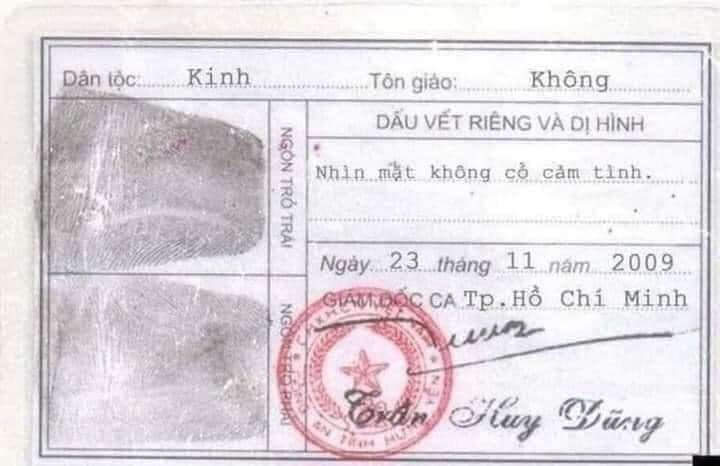 Dân tộc: Kinh Tôn giáo: Không
DẤU VẾT RIÊNG VÀ DỊ HÌNH
NGÓN TRỎ TRÁI
Nhìn mặt không có cảm tình.
Ngày 23 tháng 11 năm 2009
GIÁM ĐỐC CA Tp.Hồ Chí Minh
NGÓN TRỎ PHẢI
Trần Huy Dũng